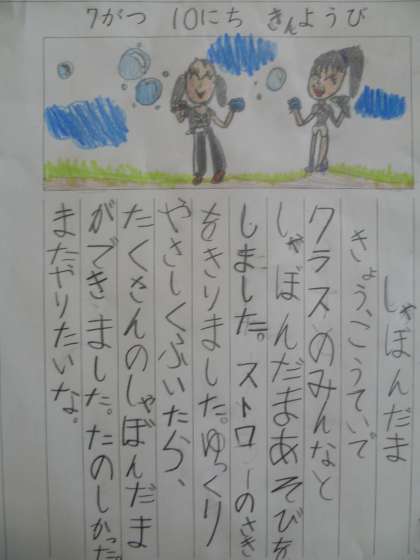 7がつ 10にち きんようび
しゃぼんだま
きょう、こうていで
クラスのみんなと
しゃぼんだまあそびを
しました。ストローのさき
をきりました。ゆっくり
やさしくふいたら、
たくさんのしゃぼんだま
ができました。たのしかった。
またやりたいな。